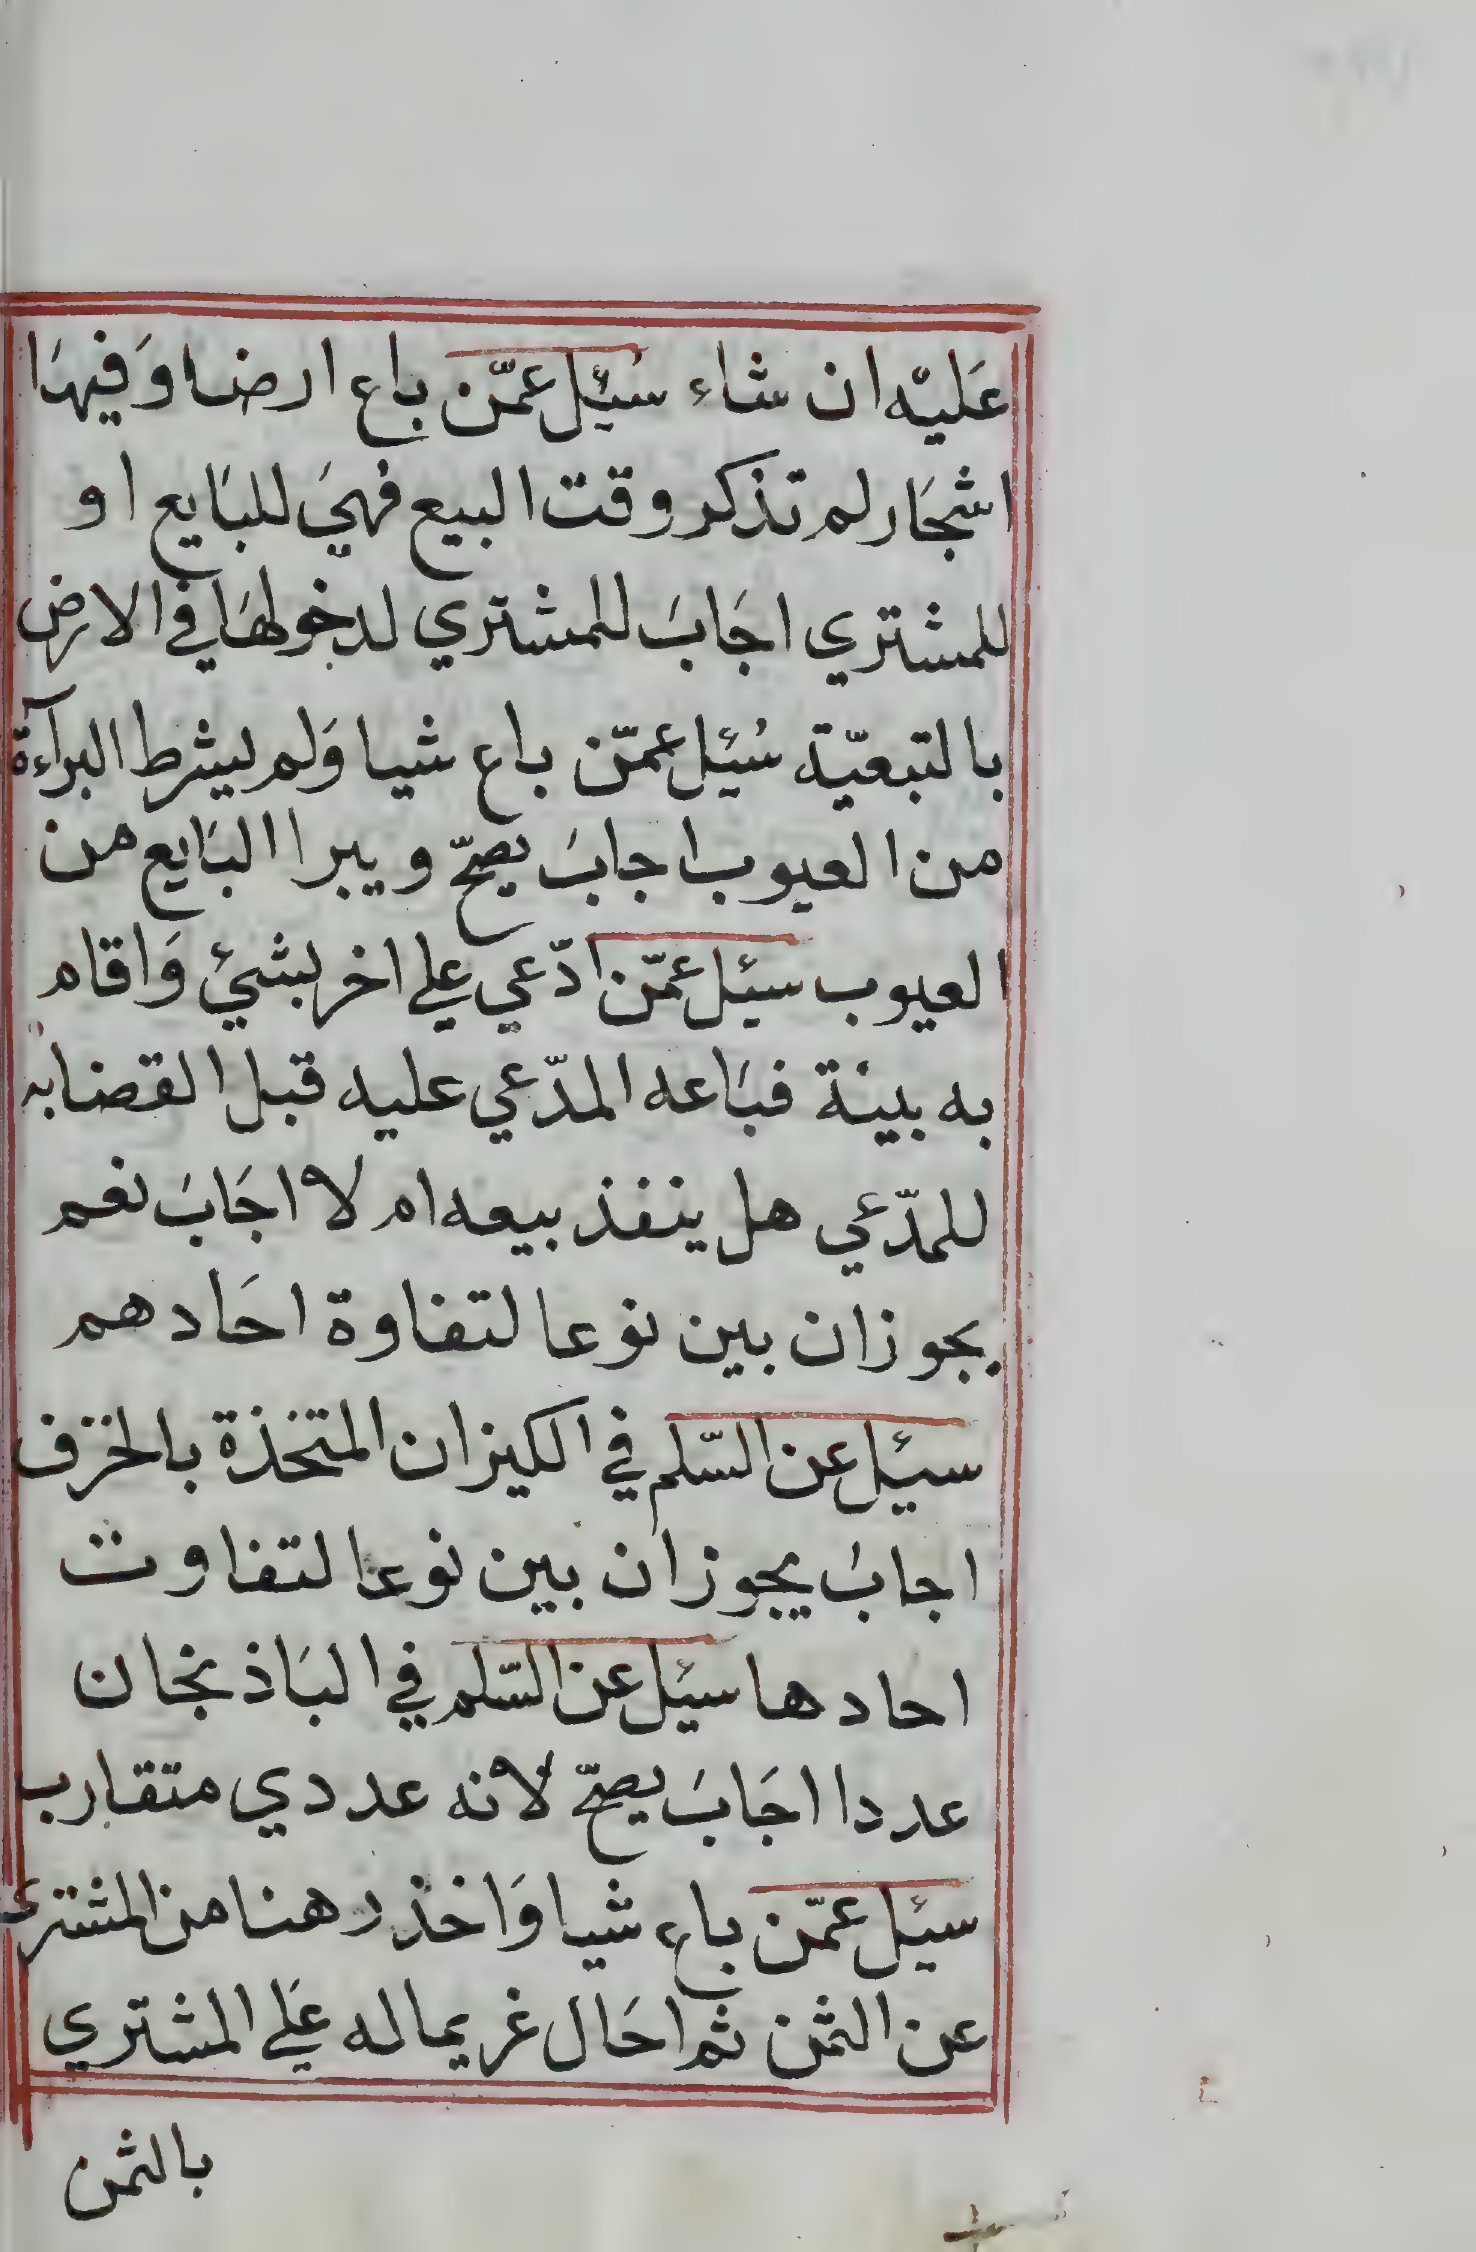 عَليْه ان شاء سُئِل عمّن باع ارضا وَفيهَا
اشجَار لم تذكر وقت البيع فهيَ للبَايع او
للمشتري اجَابَ للمشتري لدخولهَا في الارض
بالتبعيّة سُئِل عمّن باع شيا وَلم يشرط البرآءة
من العيوب اجابَ يصحّ ويبرا البَايع من
العيوب سئِل عمّن ادّعي علي اخر بشئ وَاقام
به بينة فبَاعه المدّعي عليه قبل القضا به
للمدّعي هل ينفذ بيعه ام لا اجَابَ نعم
يجوز ان بين نوعا لتفاوة احَادهم
سئِل عن السّلم في الكيزان المتخذة بالخزف
اجابَ يجوز ان بين نوعا لتفاوت
احادها سئِل عن السّلم في البَاذنجان
عددا اجَابَ يصحّ لانه عددي متقارب
سئِل عمّن باع شيا وَاخذ رهنا من المشتري
عن الثمن ثم احَال غريما له عَلي المشتري
بالثمن